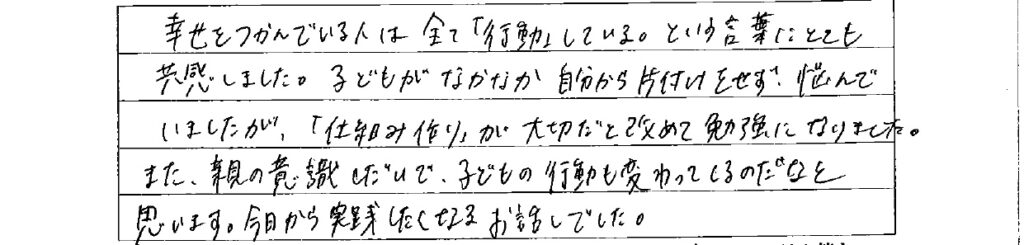 幸せをつかんでいる人は全て「行動」している。という言葉にとても
共感しました。子どもがなかなか自分から片付けをせず、悩んで
いましたが、「仕組み作り」が大切だと改めて勉強になりました。
また、親の意識しだいで、子どもの行動も変わってくるのだなと
思います。今日から実践したくなるお話しでした。